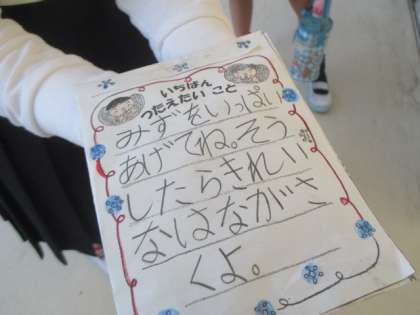 いちばん
つたえたい こと
みずをいっぱい
あげてね。そう
したらきれい
なはながさ
くよ。